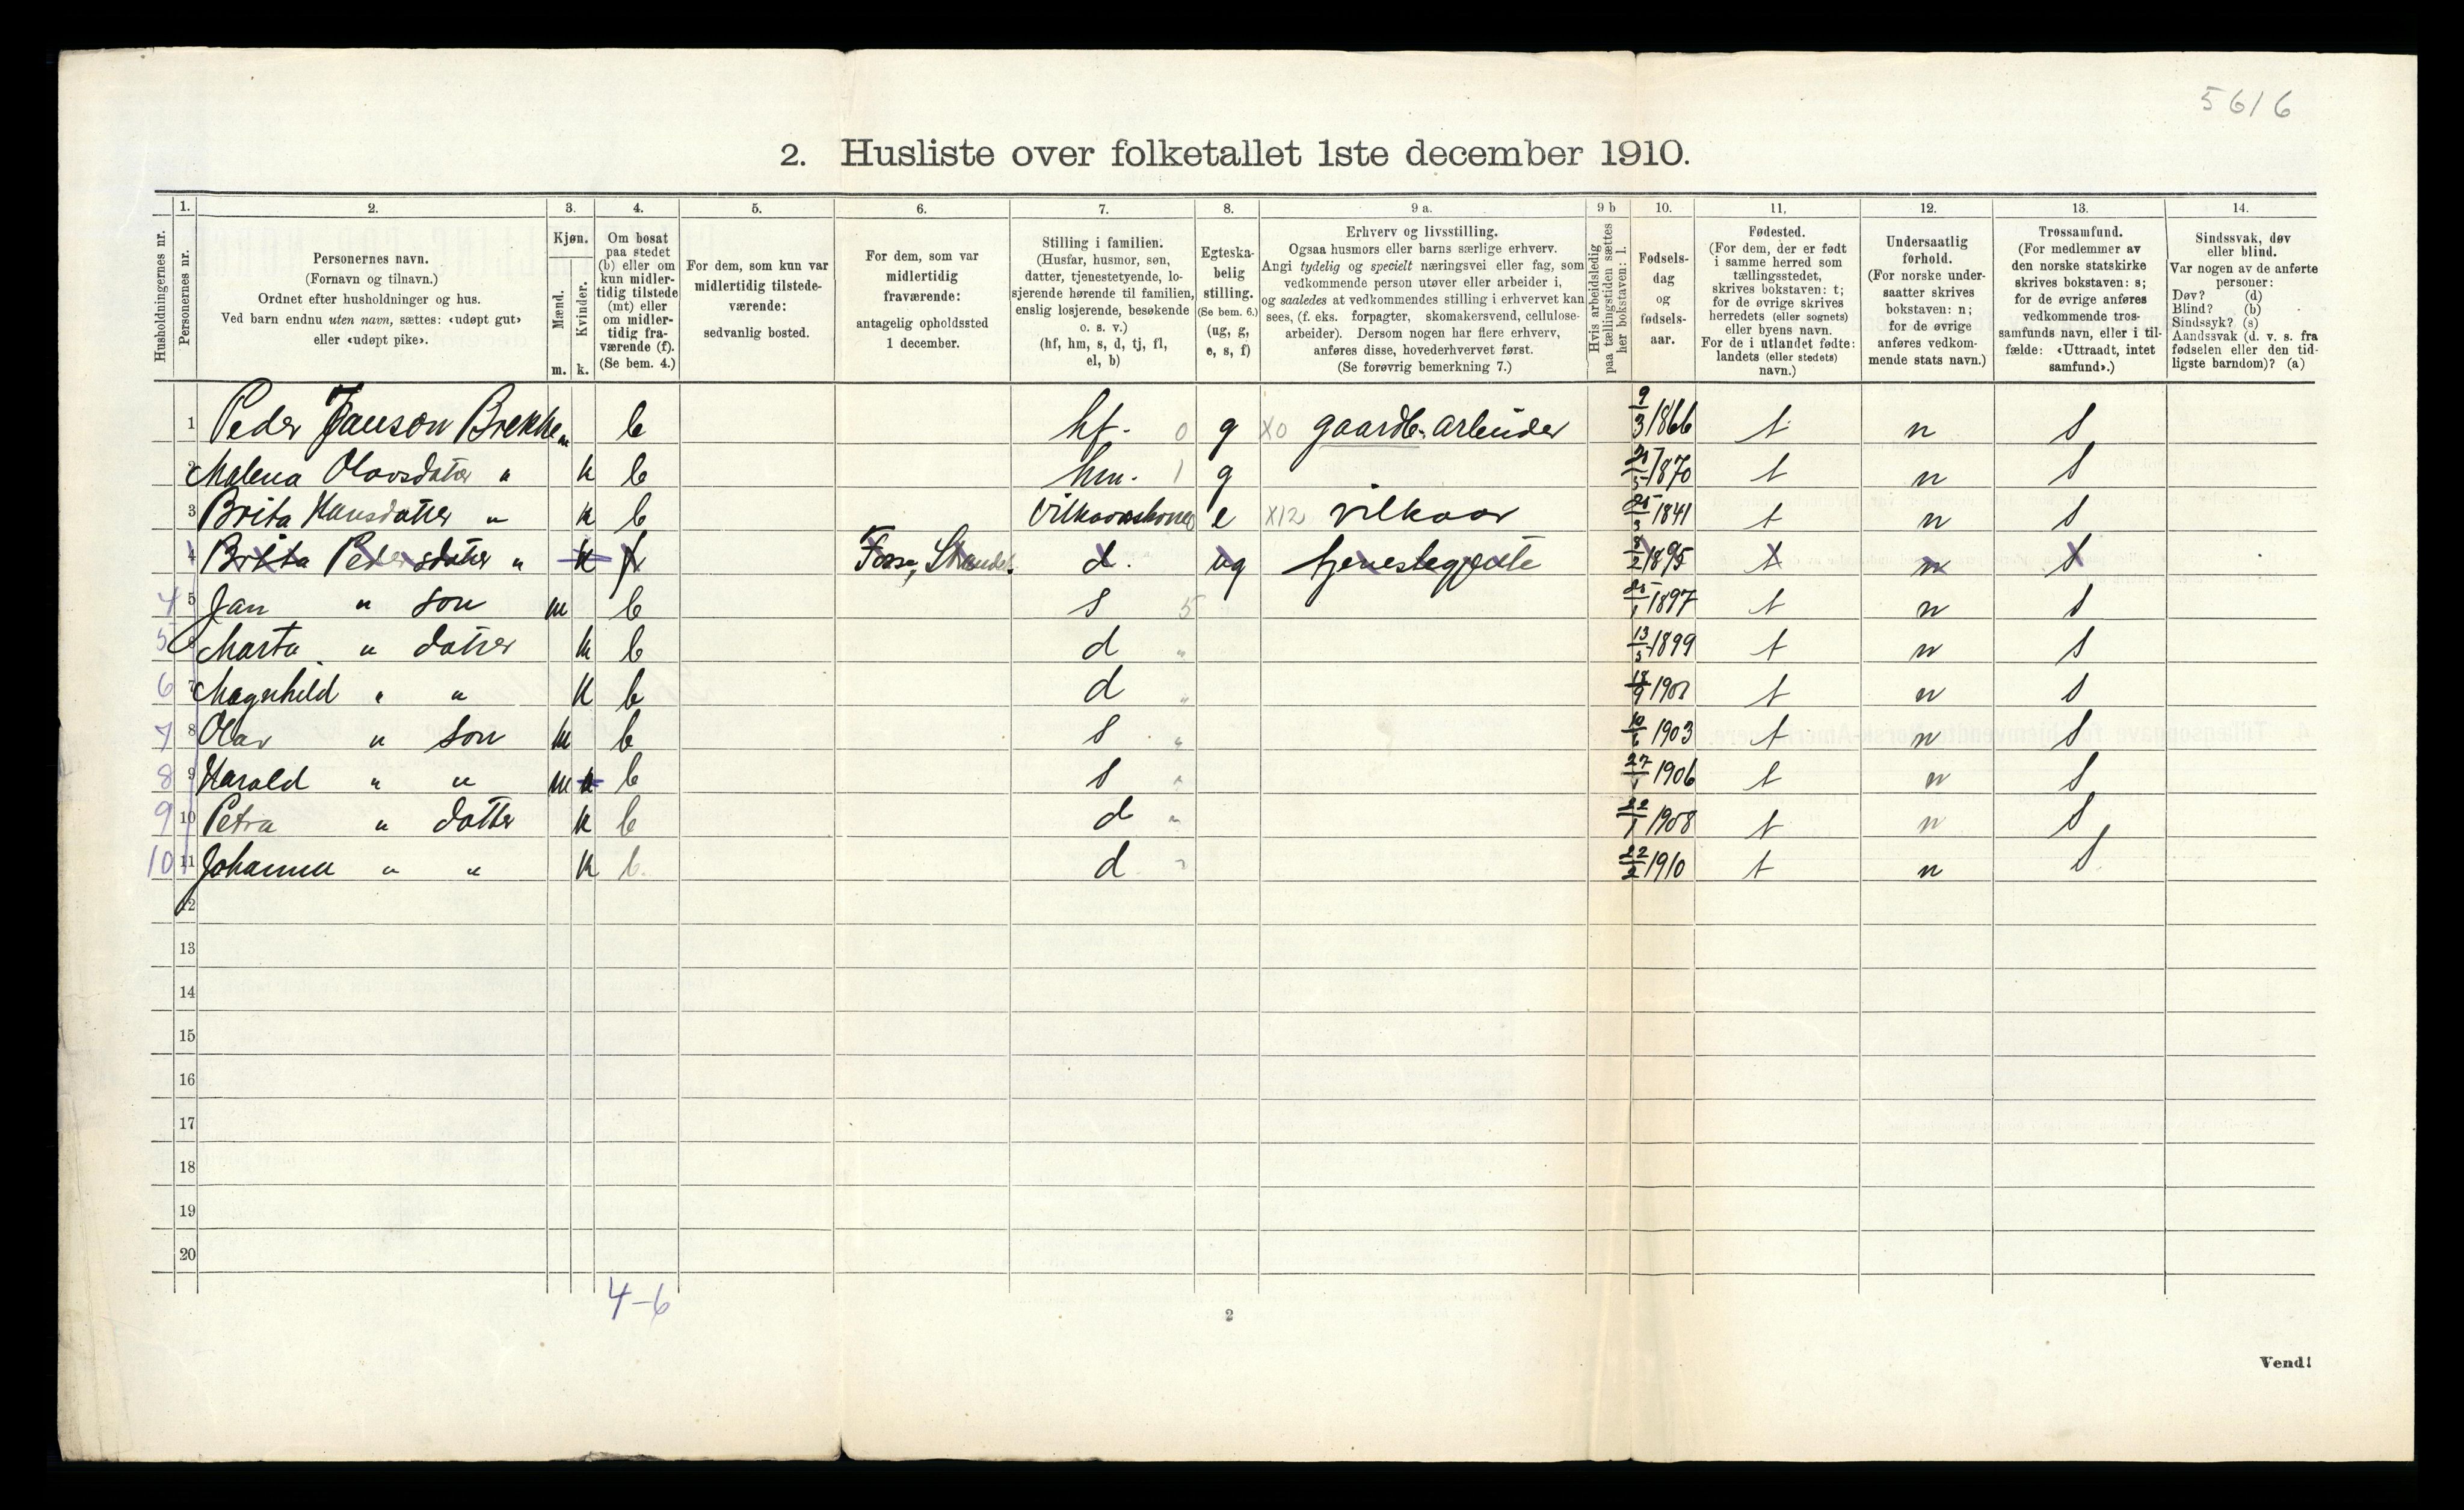 5616
2. Husliste over folketallet 1ste december 1910.
Husholdningernes nr.
1. Personernes nr.
2. Personernes navn. (Fornavn og tilnavn.) Ordnet efter husholdninger og hus. Ved barn endnu uten navn, sættes: «udøpt gut» eller «udøpt pike».
3. Kjøn. Mænd. m. Kvinder. k.
4. Om bosat paa stedet (b) eller om kun midlertidig tilstede (mt) eller om midlertidig fraværende (f). (Se bem. 4.)
5. For dem, som kun var midlertidig tilstedeværende: sedvanlig bosted.
6. For dem, som var midlertidig fraværende: antagelig opholdssted 1 december.
7. Stilling i familien. (Husfar, husmor, søn, datter, tjenestetyende, losjerende hørende til familien, enslig losjerende, besøkende o. s. v.) (hf, hm, s, d, tj, fl, el, b)
8. Egteskabelig stilling. (Se bem. 6.) (ug, g, e, s, f)
9 a. Erhverv og livsstilling. Ogsaa husmors eller barns særlige erhverv. Angi tydelig og specielt næringsvei eller fag, som vedkommende person utøver eller arbeider i, og saaledes at vedkommendes stilling i erhvervet kan sees, (f. eks. forpagter, skomakersvend, cellulosearbeider). Dersom nogen har flere erhverv, anføres disse, hovederhvervet først. (Se forøvrig bemerkning 7.)
9 b Hvis arbeidsledig paa tællingstiden sættes her bokstaven: l.
10. Fødselsdag og fødselsaar.
11. Fødested. (For dem, der er født i samme herred som tællingsstedet, skrives bokstaven: t; for de øvrige skrives herredets (eller sognets) eller byens navn. For de i utlandet fødte: landets (eller stedets) navn.)
12. Undersaatlig forhold. (For norske undersaatter skrives bokstaven: n; for de øvrige anføres vedkommende stats navn.)
13. Trossamfund. (For medlemmer av den norske statskirke skrives bokstaven: s; for de øvrige anføres vedkommende trossamfunds navn, eller i tilfælde: «Uttraadt, intet samfund».)
14. Sindssvak, døv eller blind. Var nogen av de anførte personer: Døv? (d) Blind? (b) Sindssyk? (s) Aandssvak (d. v. s. fra fødselen eller den tidligste barndom)? (a)
1 Peder Janson Brekke m b hf. 0 g X0 gaardb. arbeider 9/3 1866 t n s
2 Malena Olavsdatter " k b hm. 1 g 1870 t n s
3 Brita Hansdatter " k b Vilkaarskone e X12 vilkaar 25/3 1841 t n s
4 Brita Pedersdatter " k f Fosse, Strandeb. d. ug tjenestegjente 1895 t n s
4 5 Jan " son m b s 5 25/1 1897 t n s
5 6 Marta " datter k b d " 13/5 1899 t n s
6 7 Magnhild " " k b d " 1901 t n s
7 8 Olav " son m b s " 10/6 1903 t n s
8 9 Harald " " m k b s " 27/1 1906 t n s
9 10 Petra " datter k b d " 22/1 1908 t n s
10 11 Johanna " " k b. d " 22/2 1910 t n s
12
13
14
15
16
17
18
19
20
4-6
2
Vend!